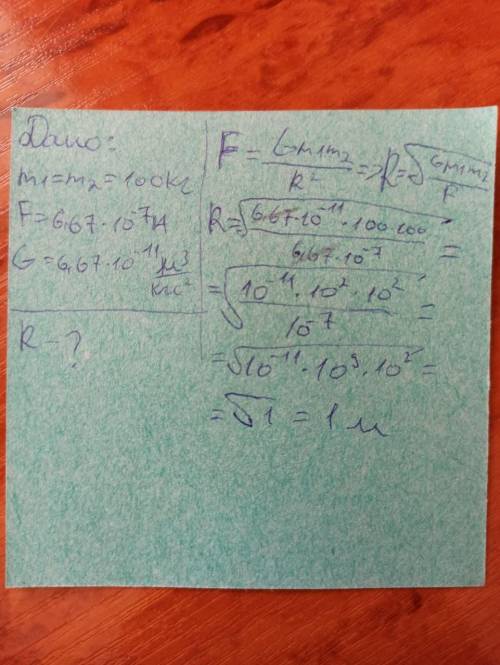 Дано:
m1=m2=100кг
F=6,67·10⁻⁷Н
G=6,67·10⁻¹¹ м³/кгс²
R-?
F = Gm1m2/R² => R=√(Gm1m2/F)
R=√(6,67·10⁻¹¹·100·100/6,67·10⁻⁷) =
=√(10⁻¹¹·10²·10²/10⁻⁷) =
=√(10⁻¹¹·10⁹·10²) =
=√1 = 1 м